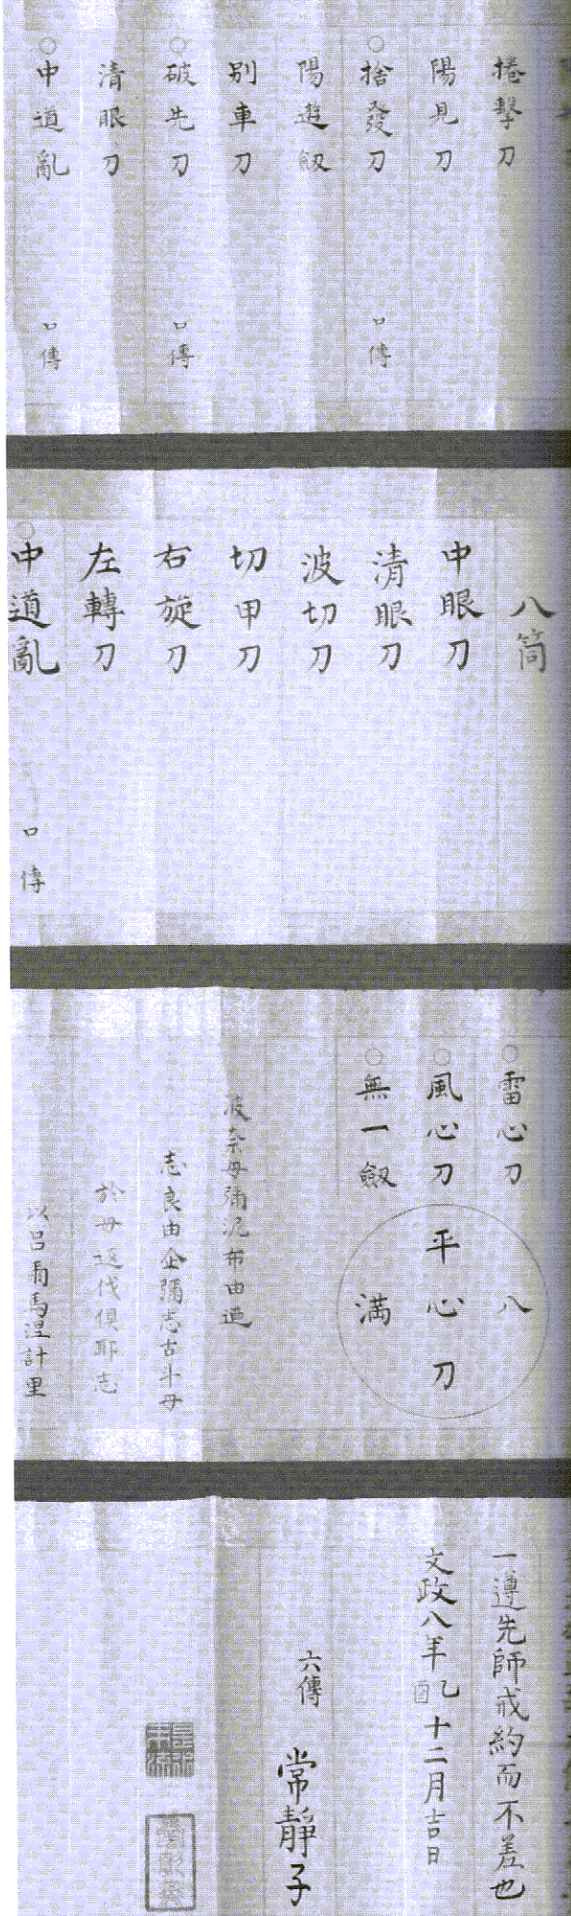 捲擊刀
陽見刀
○捨發刀 口傳
陽遊劔
別車刀
○破先刀 口傳
清眼刀
○中道亂 口傳
八箇
中眼刀
清眼刀
波切刀
切甲刀
右旋刀
左轉刀
○中道亂 口傳
○雷心刀
○風心刀
○無一劔
八
平心刀
満
波奈毋彌況布由遍
志良由企彌志古斗毋
於毋返代俱耶志
以呂有馬涅計里
一遵先師戒約而不差也
文政八年乙酉十二月吉日
六傳
常靜子